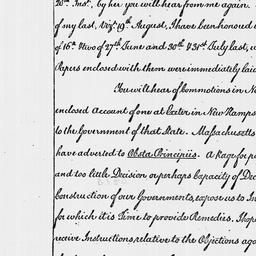 20th. Inst., by her you will hear from me again.
of my last, Vizt. 19th. August, I have been honoured w
of 16th. & two of 27th. June and 30th. & 31st. July last, w
Papers enclosed with them were immediately laid
You will hear of Commotions in N
enclosed account of one at Exeter in New Hamps
to the Government of that State. Massachusetts
have adverted to Obsta Principiis. A Rage for p
and too little Decision or perhaps Capacity of Dec
Construction of our Governments, expose us to In
for which it is Time to provide Remedies. I hop
receive Instructions relative to the Objections ag